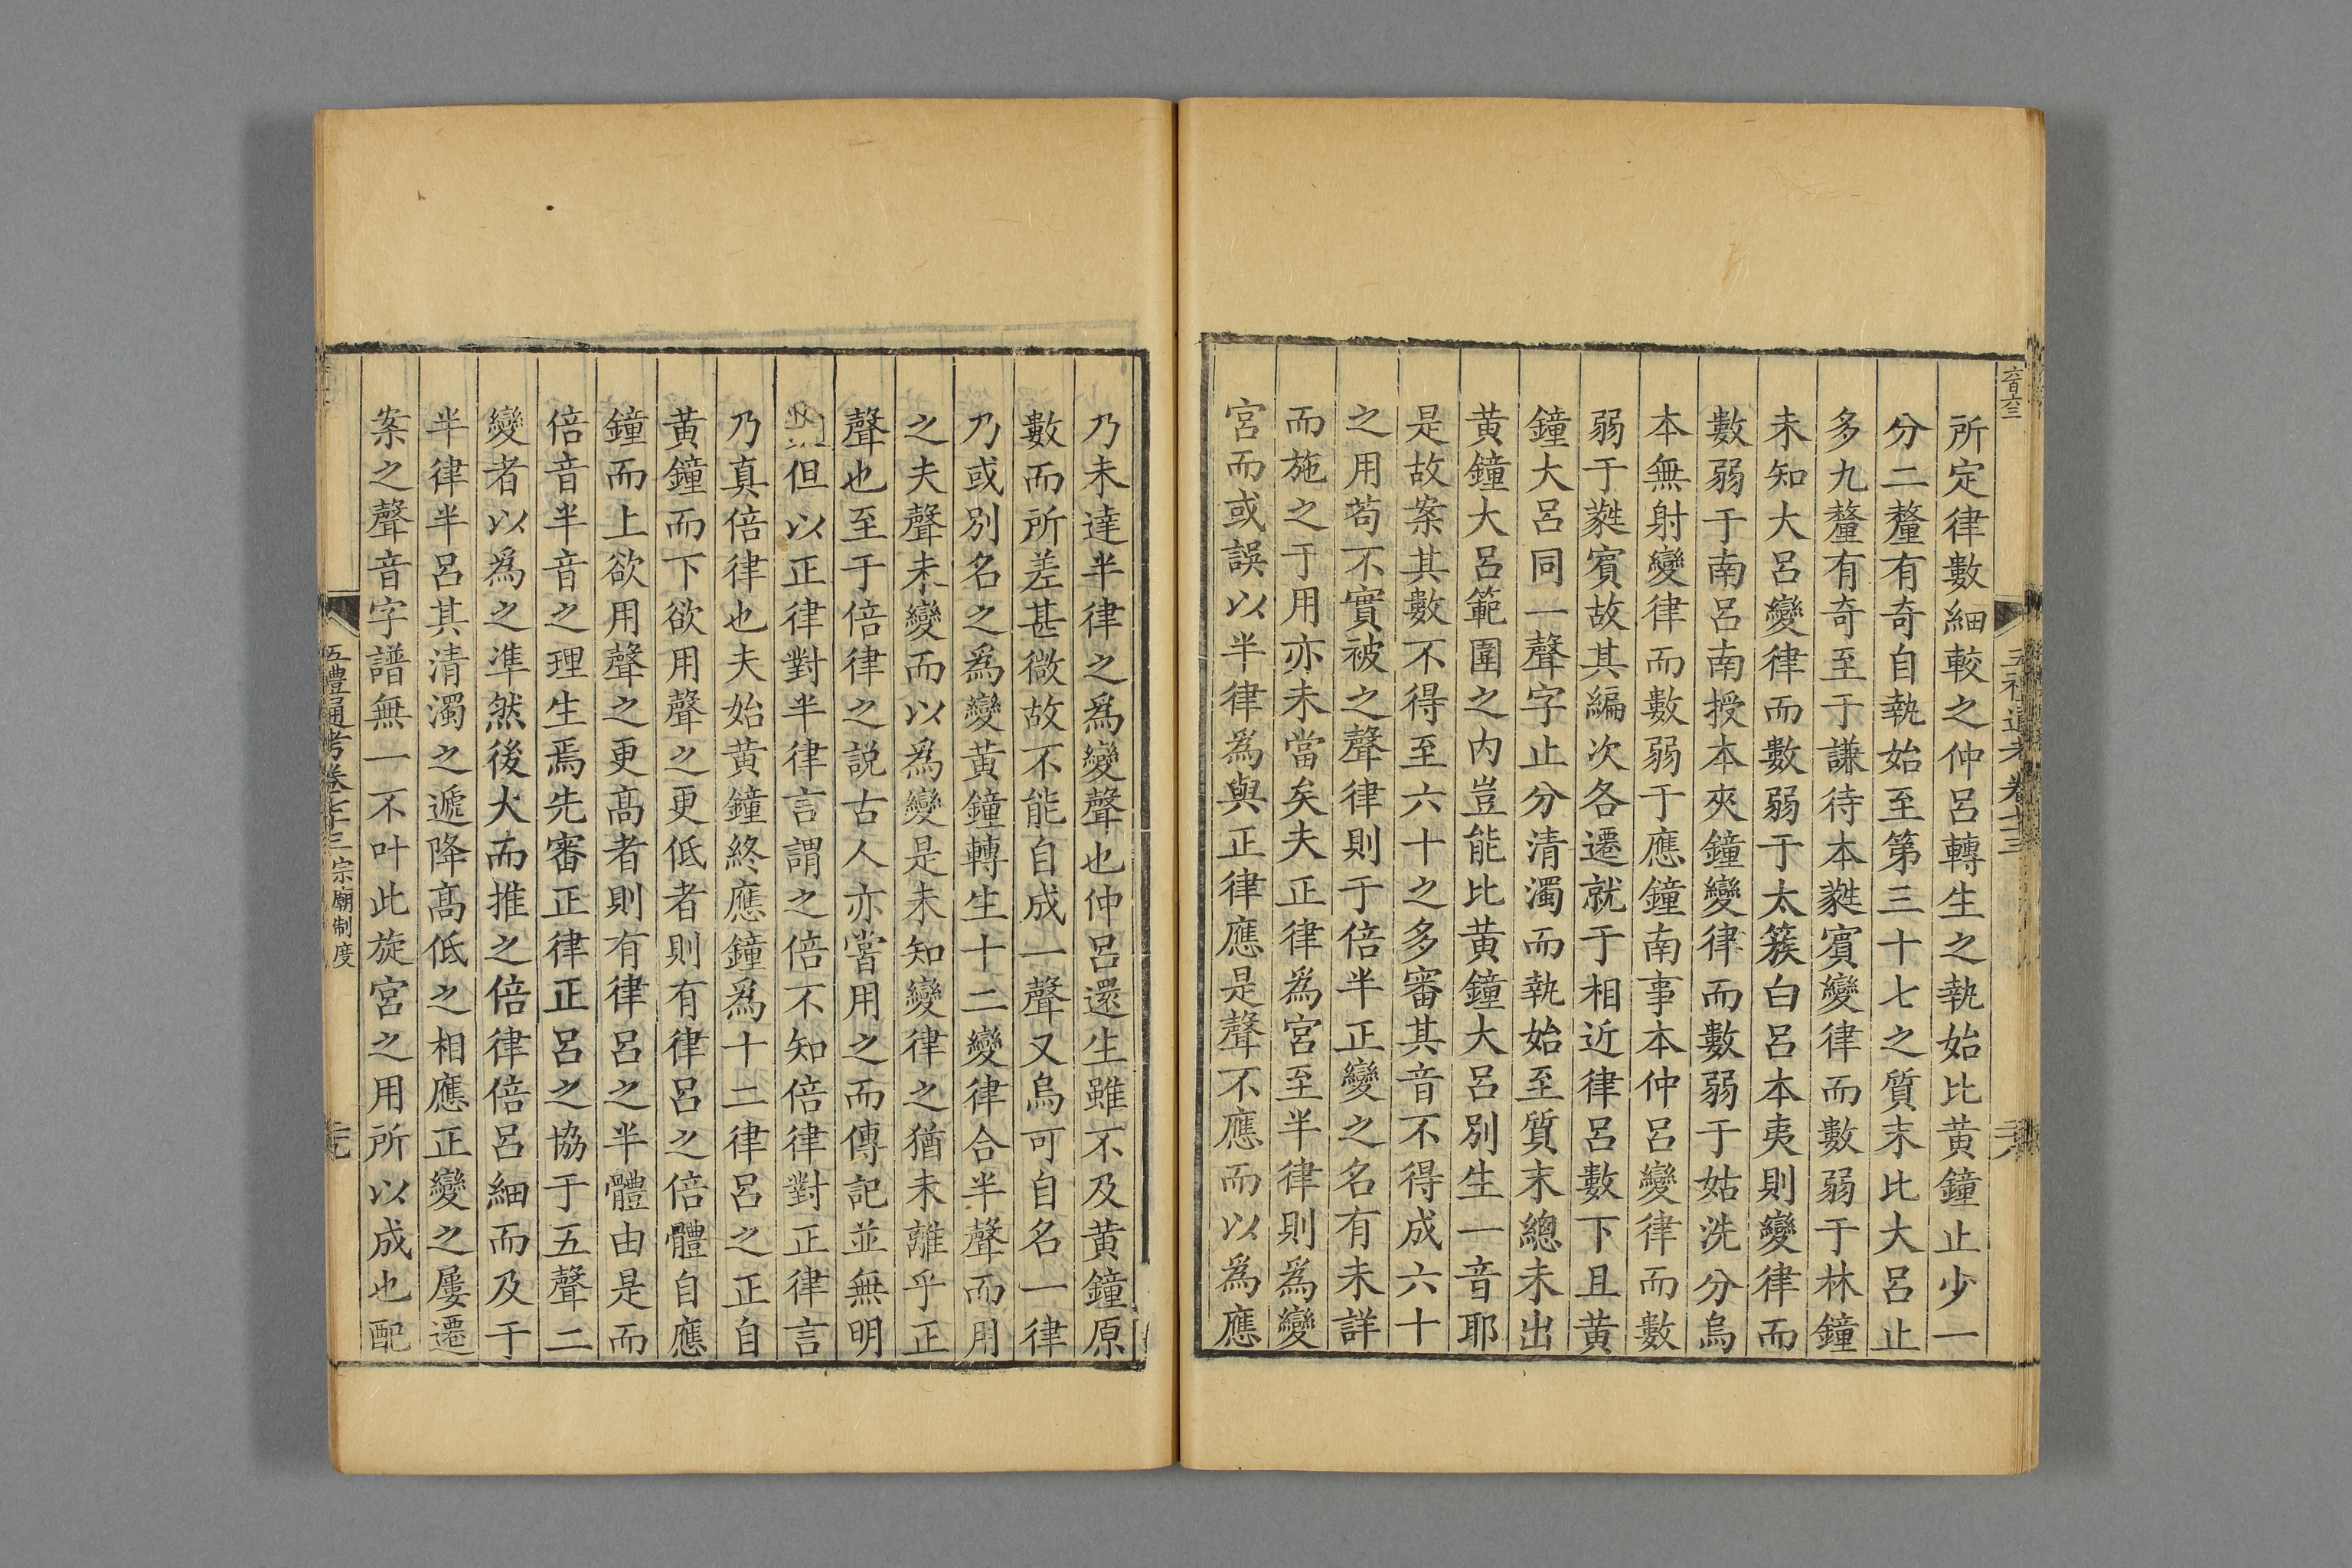 所定律數細較之仲呂轉生之執始比黃鐘止少一
分二釐有奇自執始至第三十七之質末比大呂止
多九釐有奇至于謙待本蕤賓變律而數弱于林鐘
未知大呂變律而數弱于太簇白呂本夷則變律而
數弱于南呂南授本夾鐘變律而數弱于姑洗分烏
本無射變律而數弱于應鐘南事本仲呂變律而數
弱于蕤賓故其編次各遷就于相近律呂數下且黃
鐘大呂同一聲字止分清濁而執始至質末總未出
黃鐘大呂範圍之內豈能比黃鐘大呂別生一音耶
是故案其數不得至六十之多審其音不得成六十
之用茍不實被之聲律則于倍半正變之名有未詳
而施之于用亦未當矣夫正律為宮至半律則為變
宮而或誤以半律為與正律應是聲不應而以為應
乃未達半律之為變聲也仲呂還生雖不及黃鐘原
數而所差甚微故不能自成一聲又烏可自名一律
乃或別名之為變黃鐘轉生十二變律合半聲而用
之夫聲未變而以為變是未知變律之猶未離乎正
聲也至于倍律之說古人亦嘗用之而傳記並無明
但以正律對半律言謂之倍不知倍律對正律言
乃真倍律也夫始黃鐘終應鐘為十二律呂之正自
黃鐘而下欲用聲之更低者則有律呂之倍體自應
鐘而上欲用聲之更高者則有律呂之半體由是而
倍音半音之理生焉先審正律正呂之協于五聲二
變者以為之準然後大而推之倍律倍呂細而及于
半律半呂其清濁之遞降高低之相應正變之屢遷
案之聲音字譜無一不叶此旋宮之用所以成也配
五禮通考卷七十三 宗廟制度